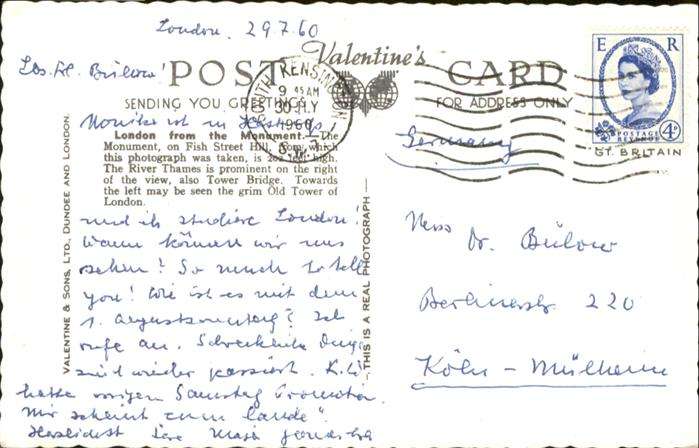 London. 29.7.60
Lbs. Frl. Bülow!
POST CARD
Valentine's
SENDING YOU GREETINGS
FOR ADDRESS ONLY
SOUTH KENSINGTON
9 45 AM
30 JLY
1960
E R
POSTAGE
REVENUE
4D
GT. BRITAIN
Monika ist in
London from the Monument.—The
Monument, on Fish Street Hill, from which
this photograph was taken, is 202 feet high.
The River Thames is prominent on the right
of the view, also Tower Bridge. Towards
the left may be seen the grim Old Tower of
London.
und ich studiere London!
Wann können wir uns
sehen? So much to tell
you! Wie ist es mit dem
1. Augustsonntag? Ich
rufe an. Schreckliche Dinge
sind wieder passiert.
hatte vorigen Samstag Promotion.
Mir scheint zum Ende".
Herzlichst Ihre
VALENTINE & SONS, LTD., DUNDEE AND LONDON.
—THIS IS A REAL PHOTOGRAPH—
Germany
Dr. Bülow
Berlinerstr. 220
Köln - Mülheim